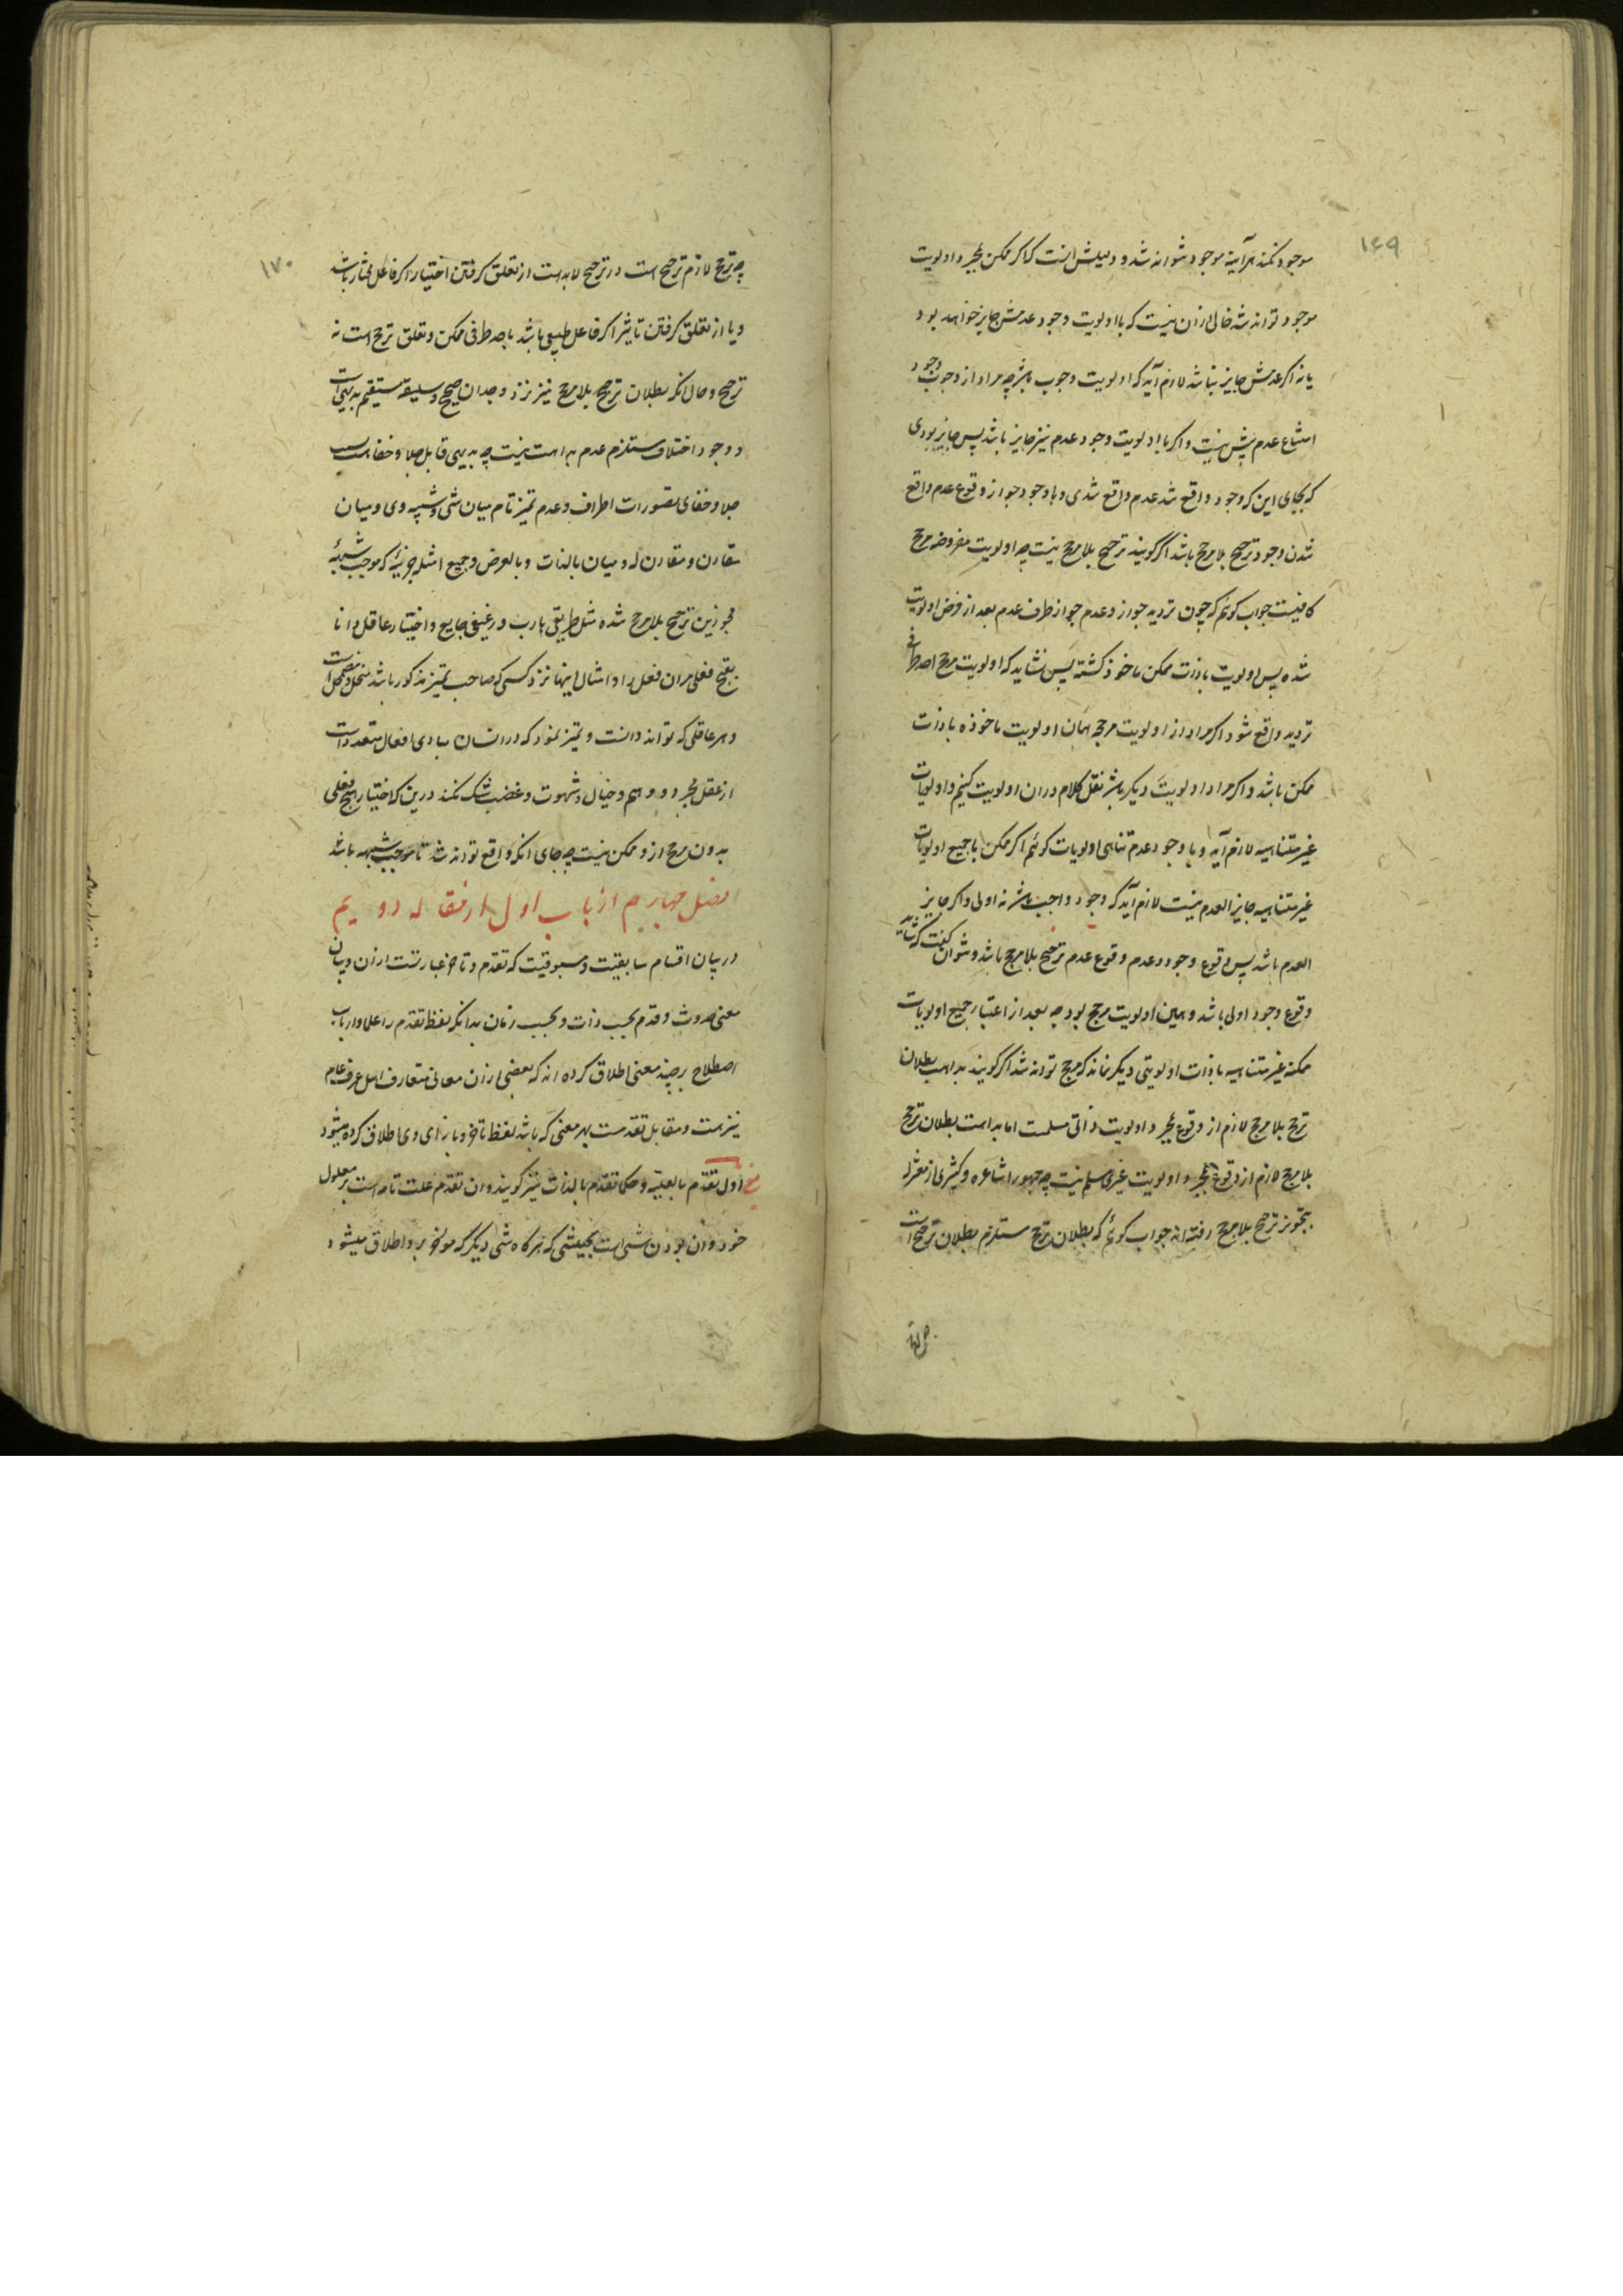 ۱۶۹
موجود نکند هرآینه موجود نتواند شد و دلیلش اینست که اگر ممکن بمجرد اولویت
موجود تواند شد خالی ازان نیست که بااولویت وجود عدمش جایز خواهد بود
یا نه اگر عدمش جایز نباشد لازم آید که اولویت وجوب باشد چه مراد از وجوب وجود
امتناع عدم بیش نیست و اگر با اولویت وجود عدم نیز جایز باشد پس جایز بودی
که بجای این که وجود واقع شد عدم واقع شدی و باوجود جواز وقوع عدم واقع
شدن وجود ترجیح بلا مرجح باشد اگر گویند ترجیح بلا مرجح نیست چه اولویت مفروضه مرجح
کافیست جواب گوئیم که چون تردید جواز و عدم جواز طرف عدم بعد از فرض اولویت
شده پس اولویت باذات ممکن ماخوذ گشته پس نشاید که اولویت مرجح احد طرفی
تردید واقع شود اگر مراد از اولویت مرجحه همان اولویت ماخوذه باذات
ممکن باشد و اگر مراد اولویت دیگر باشد نقل کلام دران اولویت کنیم و اولویات
غیر متناهیه لازم آید و با وجود عدم تناهی اولویات گوئیم اگر ممکن با جمیع اولویات
غیر متناهیه جایز العدم نیست لازم آید که وجود واجب باشد نه اولی و اگر جایز
العدم باشد پس وقوع وجود و عدم وقوع عدم ترجیح بلا مرجح باشد و نتوان گفت که شاید
وقوع وجود اولی باشد و همین اولویت مرجح بود چه بعد از اعتبار جمیع اولویات
ممکنه غیر متناهیه باذات اولویتی دیگر نماند که مرجح تواند شد اگر گویند بداهت بطلان
ترجح بلا مرجح لازم از وقوع بمجرد اولویت ذاتی مسلمست اما بداهت بطلان ترجیح
بلا مرجح لازم از وقوع بمجرد اولویت غیری مسلم نیست چه جمهور اشاعره و کثیری از معتزله
بتجویز ترجیح بلا مرجح رفته اند جواب گوئیم که بطلان ترجح مستلزم بطلان ترجیح است
۱۷۰
چه ترجح لازم ترجیح است و در ترجیح لابد است از تعلق گرفتن اختیار اگر فاعل مختار باشد
و یا از تعلق گرفتن تاثیر اگر فاعل طبیعی باشد باحد طرفی ممکن و تعلق ترجح است نه
ترجیح و حال آنکه بطلان ترجیح بلا مرجح نیز نزد وجدان صحیح و سلیقه مستقیم بدیهی است
و وجود اختلاف مستلزم عدم بداهت نیست چه بدیهی قابل جلا و خفاست بسبب
جلا و خفای تصورات اطراف و عدم تمیز تام میان شی و شبیه وی و میان
مقارن و مقارن له و میان بالذات و بالعرض و جمیع امثله جزئیه که موجب شبهه
مجوزین ترجیح بلا مرجح شده مثل طریقی هارب و رغیفی جایع و اختیار عاقل دانا
بقبح فعلی مران فعل را و امثال اینها نزد کسی که صاحب تمیز مذکور باشد منحل و مضمحل است
و هر عاقلی که تواند دانست و تمیز نمود که در انسان مبادی افعال متعدد است
از عقل مجرد و وهم و خیال و شهوت و غضب شک نکند درین که اختیار هیچ فعلی
بدون مرجح ازو ممکن نیست چه جای انکه واقع تواند شد تا موجب شبهه باشد
فصل چهارم از باب اول از مقاله دویم
در بیان اقسام سابقیت و مسبوقیت که تقدم و تاخر عبارتست ازان و بیان
معنی حدوث و قدم بحسب ذات و بحسب زمان بدانکه لفظ تقدم را علما و ارباب
اصطلاح بر چند معنی اطلاق کرده اند که بعضی ازان معانی متعارف اهل عرف عام
نیز هست و مقابل تقدمست بهر معنی که باشد لفظ تاخر و بازای وی اطلاق کرده میشود
اول تقدم بالعلیه و حکما تقدم بالذات نیز گویند و ان تقدم علت تامه است بر معلول
خود و ان بودن شی است بحیثیتی که هرگاه شی دیگر که موخر برو اطلاق میشود